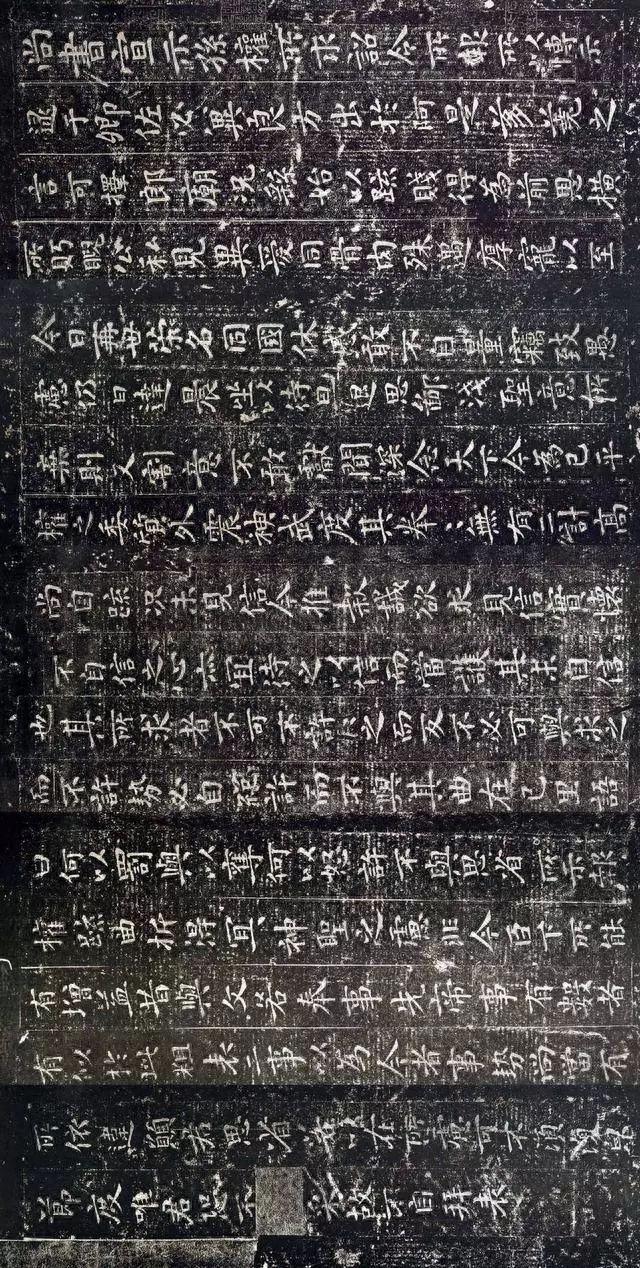 尚書宣示孫權所求詔令所報所以博示
逮于卿佐必冀良方出於阿是芻蕘之
言可擇郎廟況繇始以疏賤得為前恩橫
所眄睨公私見異愛同骨肉殊遇厚寵以至
今日再世榮名同國休慼敢不自量竊致愚
慮仍日達晨坐以待旦退思鄙淺聖意所
棄則又割意不敢獻聞深念天下今為已平
權之委質外震神武度其拳〻無有二計高
尚自疏況未見信今推款誠欲求見信實懷
不自信之心亦宜待之以信而當護其未自信
也其所求者不可不許〻之而反不必可與求之
而不許勢必自絕許而不與其曲在己里語
曰何以罰與以奪何以怒許不與思省所示報
權疏曲折得宜〻神聖之慮非今臣下所能
有增益昔與文若奉事先帝事有數者
有似於此粗表二事以為今者事勢尚當有
所依違願君思省若以在所慮可不須復
節度唯君恐不采故不自拜表